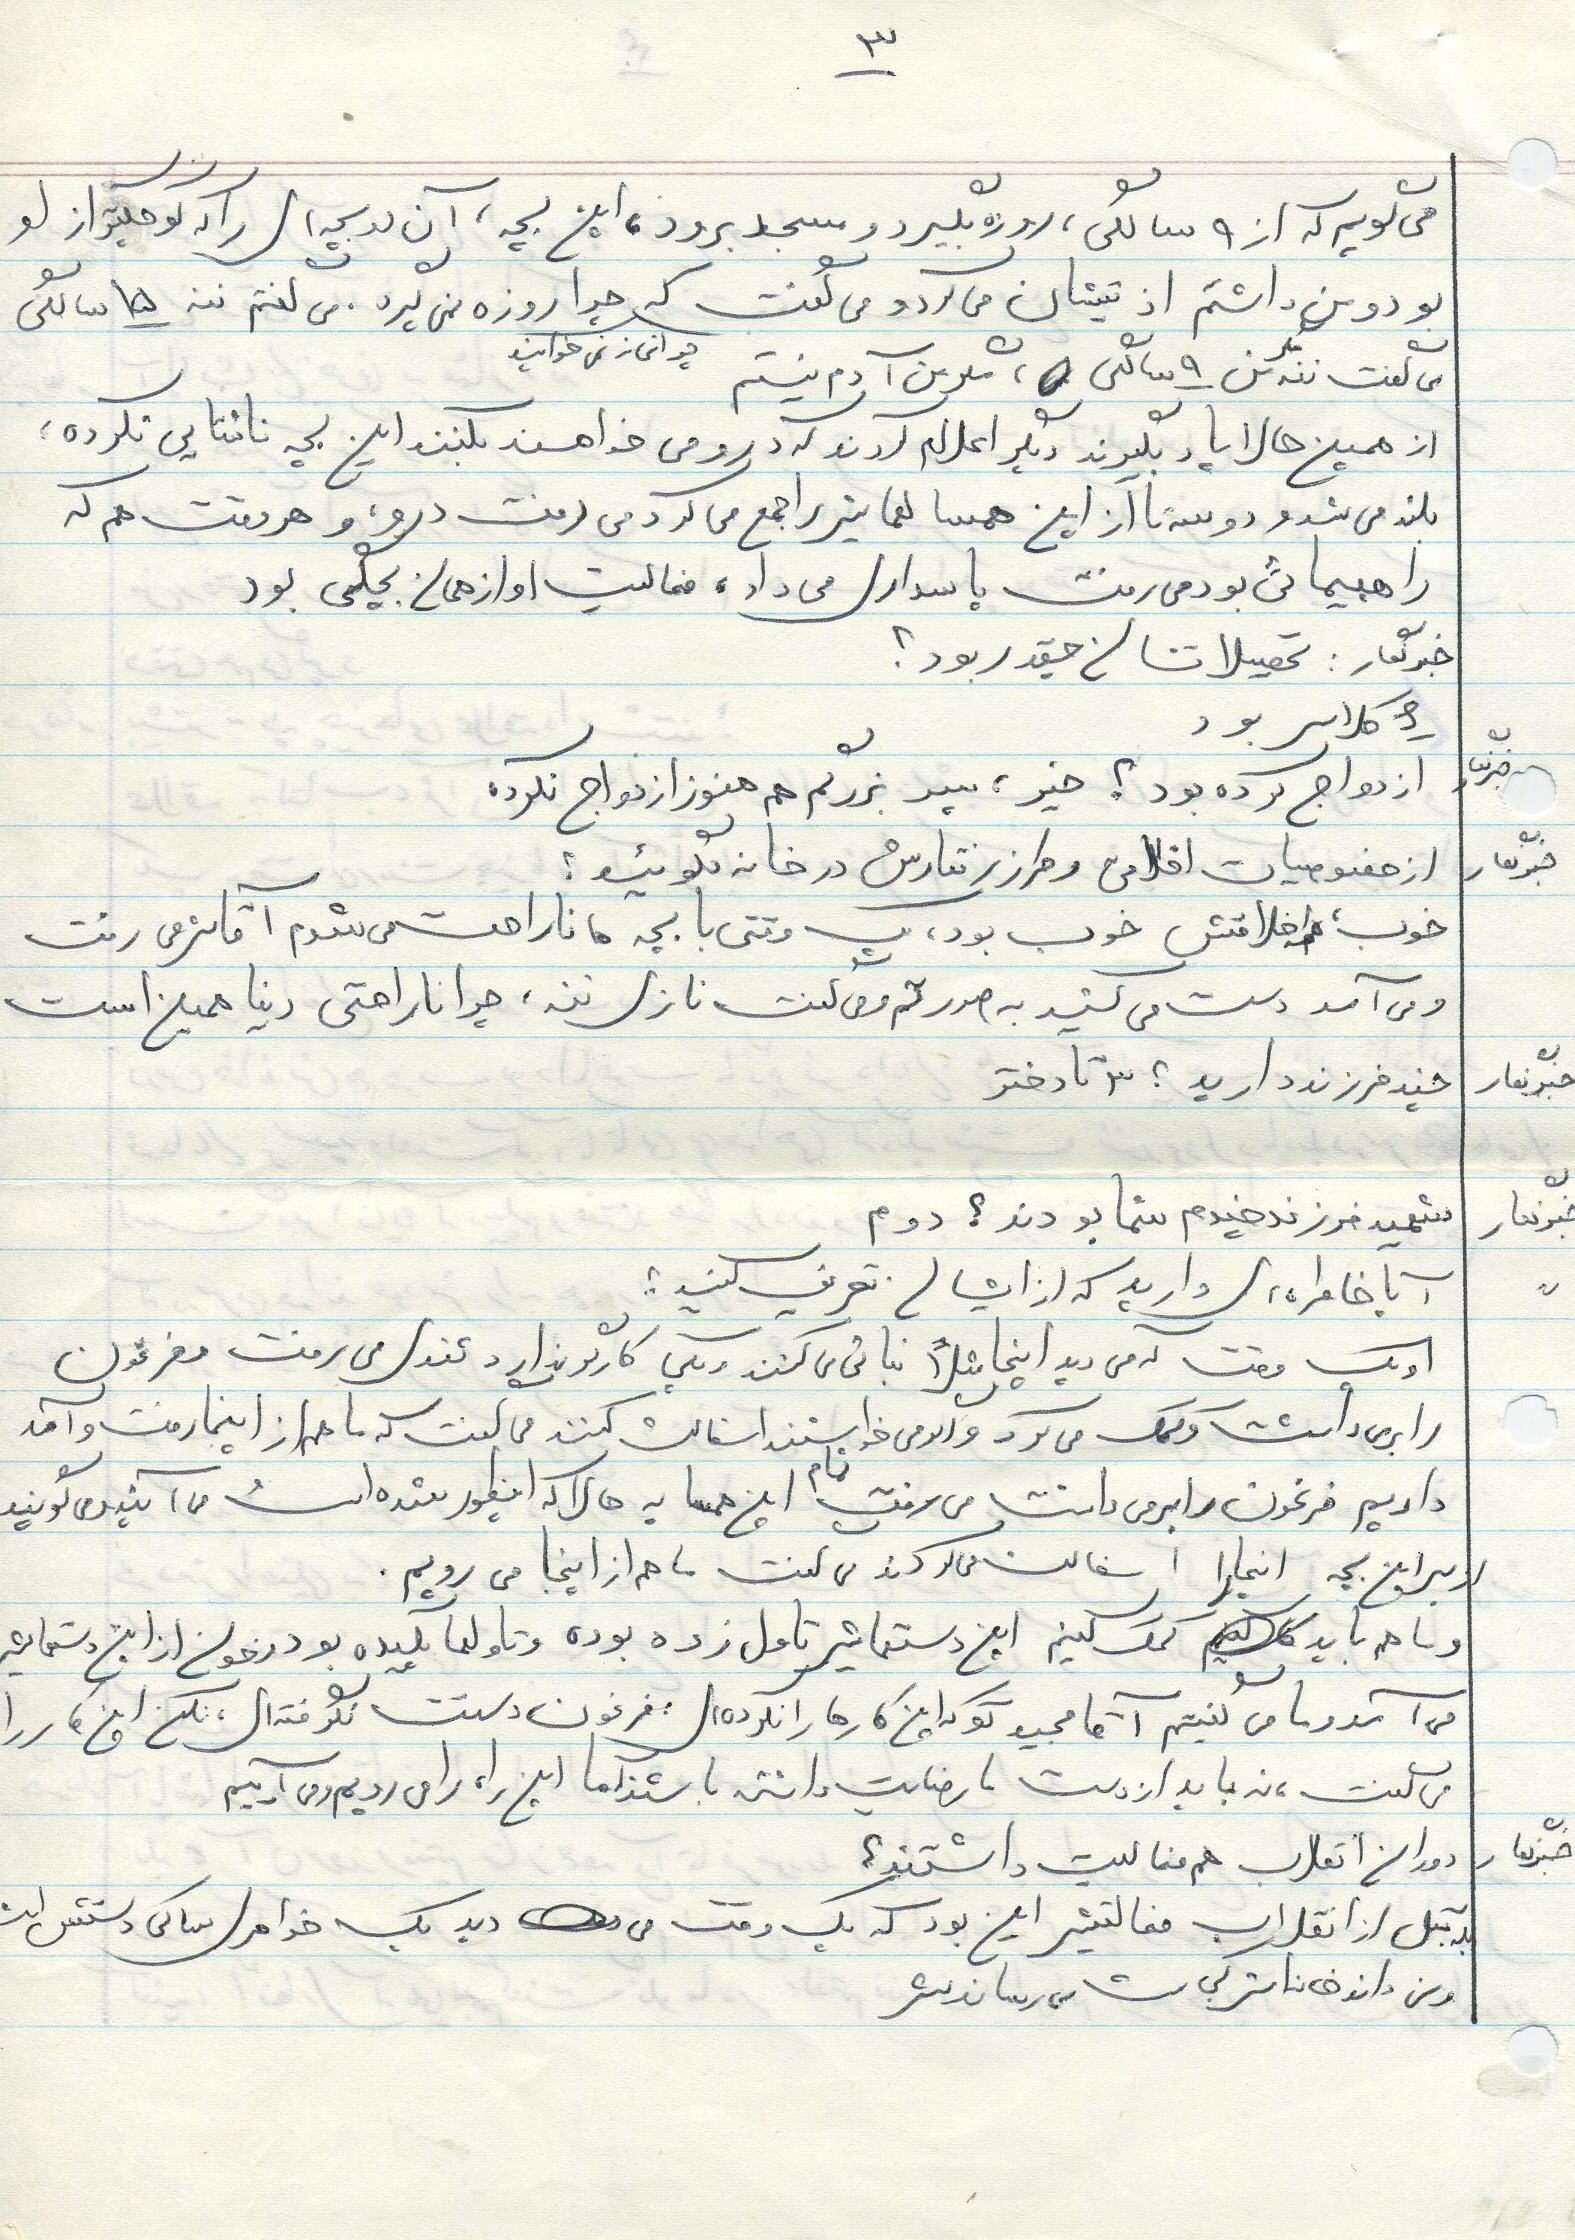 ۳
می گویم که از ۹ سالگی، روزه بگیرد و مسجد برود، این بچه، آن دو بچه ای را که کوچکتر از او
بود و من داشتم اذیتشان می کرد و می گفت که چرا روزه نمی گیره. می گفتم ننه ۱۵ سالگی
چرا نماز نمی خوانید
می گفت ننه من ۹ سالگی، مگر من آدم نیستم
از همین حالا یاد بگیرند دیگر اعلام کردند که درو می خواهند بکنند این بچه ناشتایی نکرده،
بلند می شد و دو سه تا از این همسالهایش را جمع می کرد می رفت درو، و هر وقت هم که
راهپیمائی بود می رفت پاسداری می داد، فعالیت او از همان بچگی بود
خبرنگار: تحصیلاتشان چقدر بود؟
کلاس بود
خبرنگار ازدواج کرده بود؟ خیر، پسر بزرگم هم هنوز ازدواج نکرده
خبرنگار از خصوصیات اخلاقی و طرز رفتارش در خانه بگوئید؟
خوب، اخلاقش خوب بود، یک وقتی با بچه ها ناراحت می شدم آقایش می رفت
و می آمد دست می کشید به صورتم و می گفت نازی ننه، چرا ناراحتی دنیا همین است
خبرنگار چند فرزند دارید؟ ۳ تا دختر
خبرنگار شهید فرزند چندم شما بودند؟ دوم
" آیا خاطره ای دارید که از ایشان تعریف کنید؟
او یک وقت که می دید اینجا مثلاً بنائی می کنند و یکی کارگر ندارد تندی می رفت و فرغون
را برمی داشت و کمک می کرد و اگر می خواستند اسفالت کنند می گفت که ما هم از اینجا رفت و آمد
داریم فرغون را برمی داشت می رفت تمام این همسایه حالا که اینطور شده است می آیند و می گویند
این بچه اینجا را اسفالت می کردند می گفت ما هم از اینجا می رویم.
و ما هم باید کمک کنیم این دستهایش تاول زده بوده و تاولها ترکیده بود و خون از این دستهایش
می آمد و ما می گفتیم آقا مجید تو که این کارها را نکرده ای، فرغون دستت نگرفته ای، نکن این کار را
می گفت، نه باید از دست ما رضایت داشته باشند ما این راه را می رویم و می آییم
خبرنگار دوران انقلاب هم فعالیت داشتند؟
بله قبل از انقلاب فعالیتش این بود که یک وقت می دید یک خواهری ساکی دستش است
و می رساندش